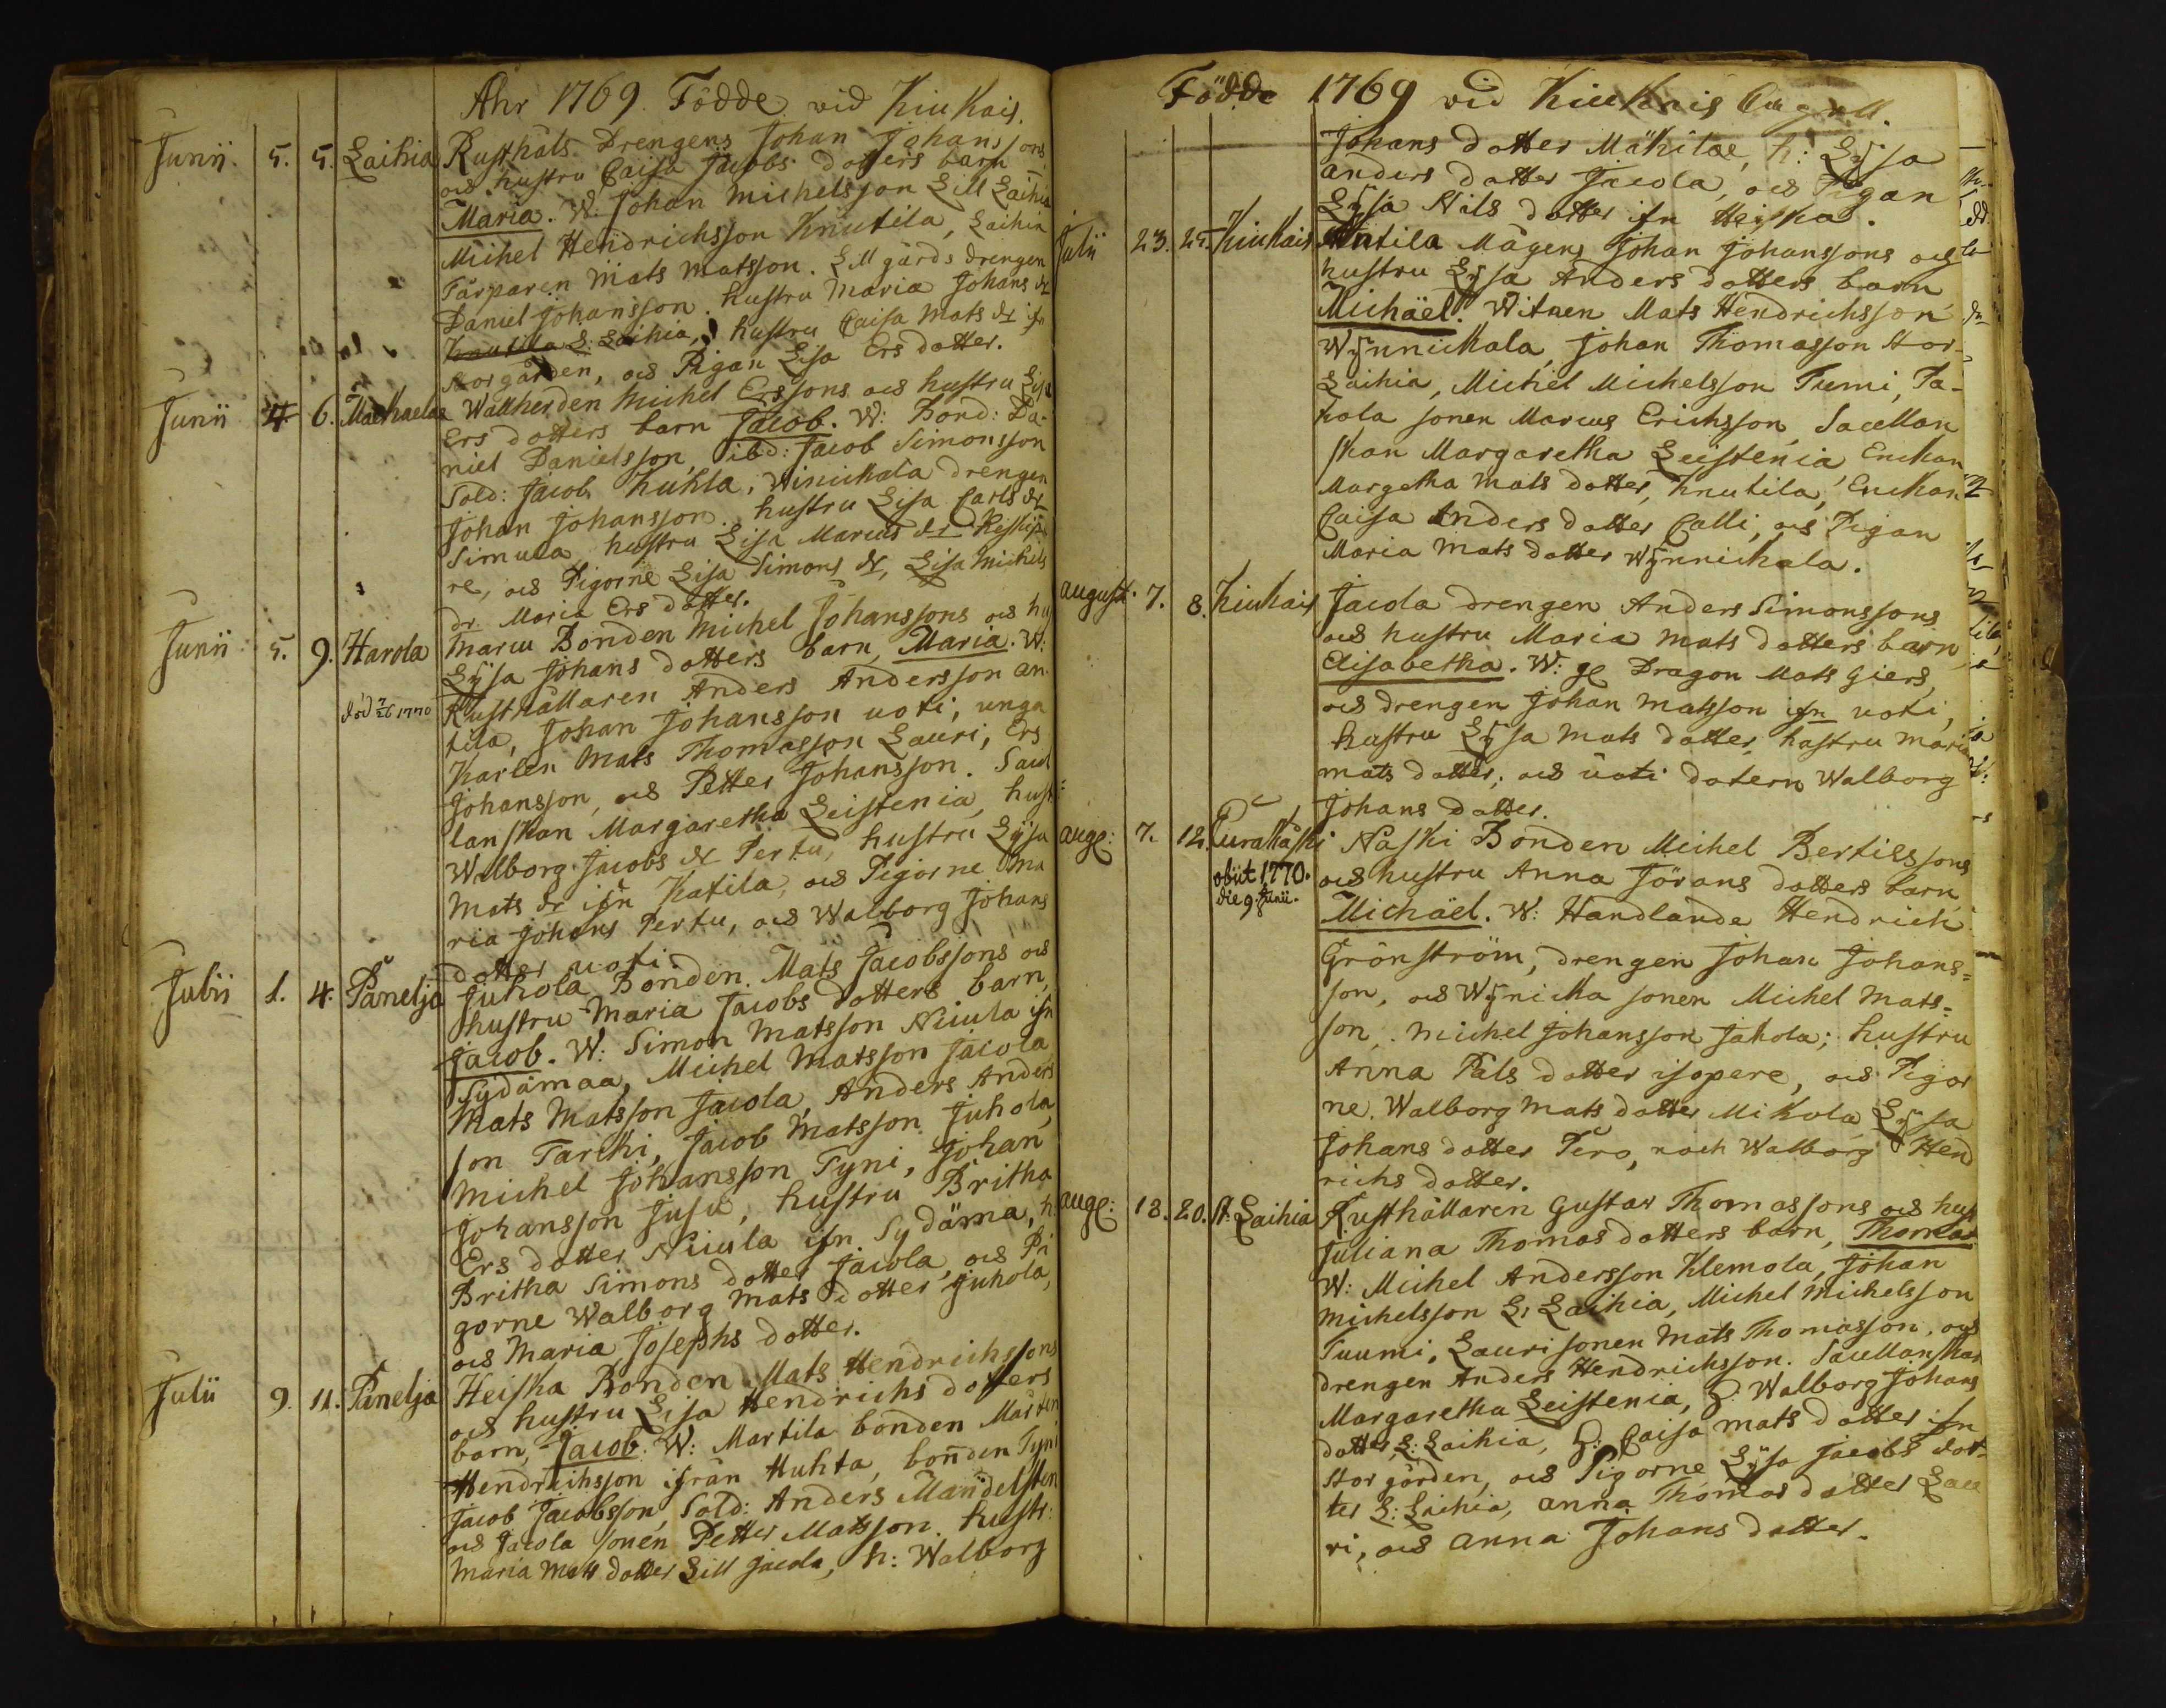 Åhr 1769. Födde vid Kiukais.
Junii. 5. 5. Laihia Rusthåls Drengens Johan Johanssons
och hustru Caisa Jacobs dotters barn
Maria. W. Johan Michelsson Lill Laihia
Michel Hendrichsson Knutila, Laihia
Torparen Mats Matsson. Lill gårds drengen
Daniel Johansson. hustru Maria Johans dr
Knutila L: Laihia, hustru Caisa Mats dr ifr
Storgården, och Pigan Lisa Ers dotter.
Junii 4. 6. Wallherden Michel Erssons och hustru Lisa
Ers dotters barn Jacob. W: Bond: Da-
niel Danielsson, ibd: Jacob Simonsson
Sold: Jacob Huhta, Winickala drengen
Johan Johansson. hustru Lisa Carls dr
Simula hustru Lisa Marcus dr
re, och Pigorne Lisa Simons dr, Lisa Michels
dr. Maria Ers dotter.
Junii 5. 9. Harola Marcu Bonden Michel Johanssons och hu
Lÿsa Johans dotters barn, Maria. W:
död 7/26 1770 Rusthållaren Anders Andersson An-
tila, Johan Johansson Uoti, unga
Karlen Mats Thomasson Lauri, Ers
Johansson, och Petter Johansson. Sacel
lanskan Margaretha Leistenia, hust:
Walborg Jacobs dr Pertu, hustru Lÿsa
Mats dr ifrn Katila, och Pigorne Ma
ria Johans Pertu, och Walborg Johans
dotter Uoti.
Julii 1. 4. Panelja Juhola Bonden Mats Jacobssons och
hustru Maria Jacobs dotters barn,
Jacob. W: Simon Matsson Niuula ifn
Sydämaa, Michel Matsson Jacola,
Mats Matsson Jacola, Anders Anders
son Tarcki, Jacob Matsson Juhola,
Michel Johansson Tyni, Johan
Johansson Jusu, hustru Britha
Ers dotter Niuula ifrn Sydäma, h.
Britha Simons dotter Jacola, och Pi
gorne Walborg Mats dotter Juhola,
och Maria Josephs dotter.
Julii 9. 11. Panelja Heiska Bonden Mats Hendrichssons
och hustru Lisa Hendrichs dotters
barn, Jacob. W: Martila bonden Mårten
Hendrichsson ifrån Huhta, bonden Tyni
Jacob Jacobsson, Sold: Anders Mandelsten
och Jacola sonen Petter Matsson. hustr:
Maria Mats dotter Lill Jacola, h: Walborg
Födde 1769 vid Kiukais Capell.
Johans dotter Mäkilae, h: Lÿsa
Anders dotter Jacola, och Pigan
Lÿsa Nils dotter ifrn Heiska.
Julii 23. 25. Kiukais Antila Mågens Johan Johanssons och
hustru Lÿsa Anders dotters barn
Michäel. Witnen Mats Hendrichsson
Wÿnnickala, Johan Thomasson Stor-
Laihia, Michel Michelsson Tuomi, Ja-
kola sonen Marcus Erichsson, Sacellan
skan Margaretha Leistenia Enckan
Margetha Mats dotter, Knutila, Enckan
Caisa Anders dotter Calli, och Pigan
Maria Mats dotter Wÿnnickala.
August. 7. 8. Kiukais Jacola drengen Anders Simonssons
och hustru Maria Mats dotters barn
Elisabetha. W: gl Dragon Mats Giers,
och drengen Johan Matsson ifrn Uoti,
hustru Lÿsa Mats dotter, hustru Maria
Mats dotter, och Uoti dotern Walborg
Johans dotter.
Aug: 7. 12. Eurakåski Naski Bonden Michel Bertilssons
obiit 1770. och hustru Anna Jörans dotters barn,
die 9. Junii. Michäel. W: Handlande Hendrich
Grönström, drengen Johan Johans=
son, och Wÿnicka sonen Michel Mats=
son, Michel Johansson Jakola; hustru
Anna Påls dotter isopere, och Pigor
ne. Walborg Mats dotter Mikola, Lÿsa
Johans dotter Tero, noch Walborg Hend
richs dotter.
Aug: 18. 20. St: Laihia Rusthållaren Gustav Thomassons och hust
Juliana Thomas dotters barn, Thomas
W: Michel Andersson Klemola, Johan
Michelsson L: Laihia, Michel Michelsson
Tuumi, Laurisonen Mats Thomasson, och
drengen Anders Hendrichsson. Sacellanskan
Margaretha Leistenia, H. Walborg Johans
dotter, L: Laihia, H: Caisa Mats dotter ifrn
Storgården, och Pigorne Lÿsa Jacobs dot-
ter L: Laihia, Anna Thomas dotter Lau
ri, och Anna Johans dotter.